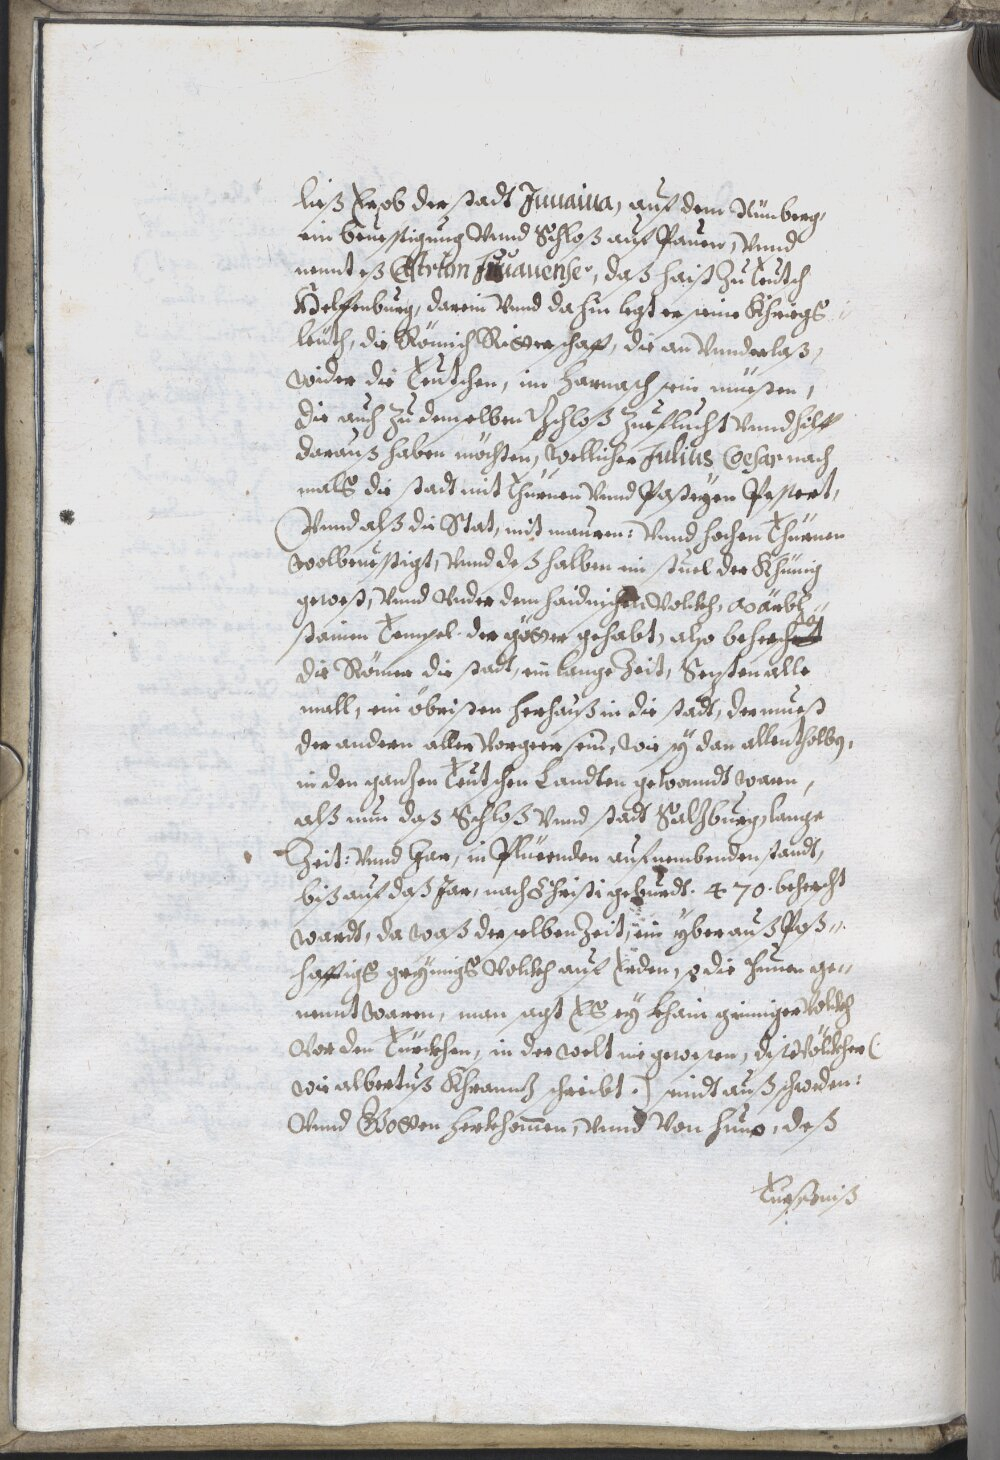 ließ Er ob der stadt Juuauia, auf dem Nünberg,
ein beuestigung Vnnd Schloß auf Pauen, Vnnd
nennt eß Castrum Juuauense, daß haist Zu Teutsch
Helffenburg, darein Vnnd dahin legt er seine Khriegs
leuth, die Römisch Ritterschafft, die an Vnnderlaß,
wider die Teutschen, im harnasch sein muesten,
die auch Zu demselben Schloß Zueflucht Vnnd hilff
darauß haben möchten, wellicher Julius Cesar nach
mals die stadt mit Thürnen Vnnd Pasteyen
Vnnd alß die Stat, mit mauren: Vnnd hochen Thürnen
wolbeuestigt, Vnnd deßhalben ein stuel der Khünig
gewest, Vnnd Vnder dem haidnischen Volckh, Märbl
stainen Tempel der götter gehabt, also behercht
die Römer die stadt, ein lange Zeit, Sezten alle
mall, ein öbristen herhauß in die stadt, der muest
der andern aller Vorgeer sein, wie sy dan allenthalben,
in den ganzen Teutschen Landten gewonndt waren,
alß nun daß Schloß Vnnd stadt Salzburg, lange
Zeit: Vnnd Jar, in Plüeenden aufnembenden standt,
biß auf daß Jar, nach Christi geburdt. 470. behercht
wardt, da waß derselben Zeit, ein yberauß Poß-
hafftigs Volckh auf Erden, die Hunen ge-
nennt waren, man sagt Es sey khain grimiger Völckh
Vor den Türckhen, in der welt nie gewesen, dise Völckher (
wie albertuß Khranntz schreibt.) seindt auß schweden:
Vnnd Gotten herkhomen, Vnnd Von Huno, deß